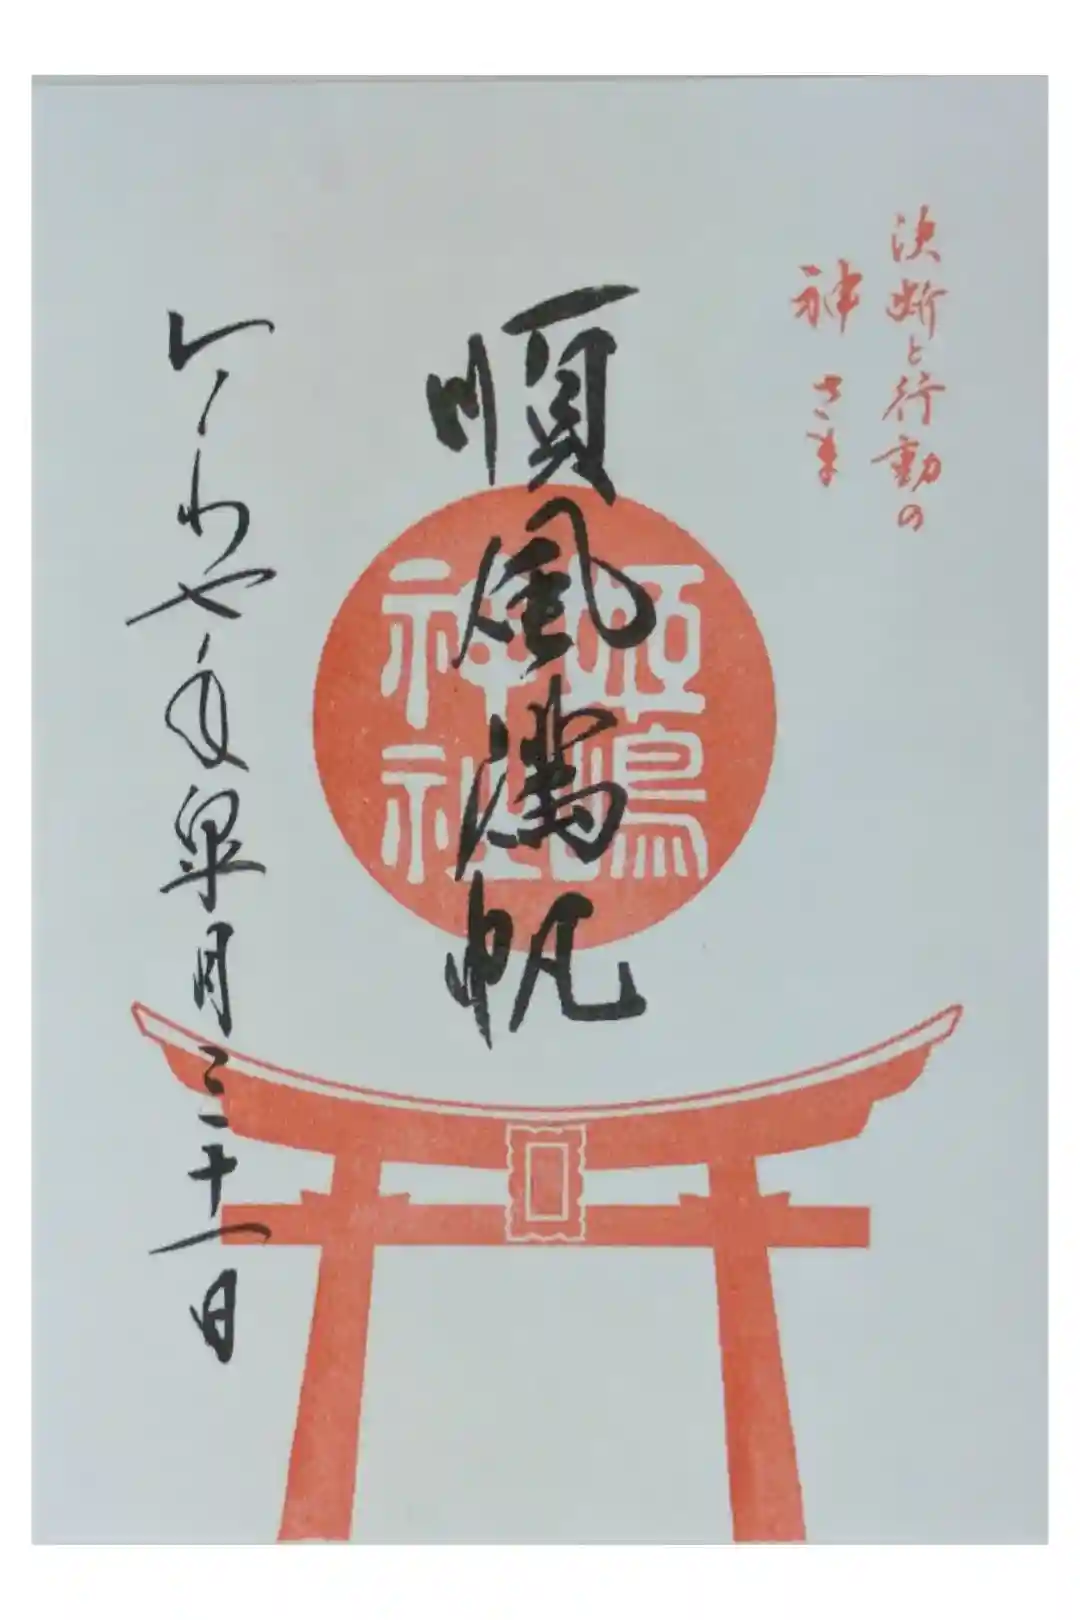 決断と行動の
神さま
順風満帆
姫嶋
神社
七年皐月三十一日